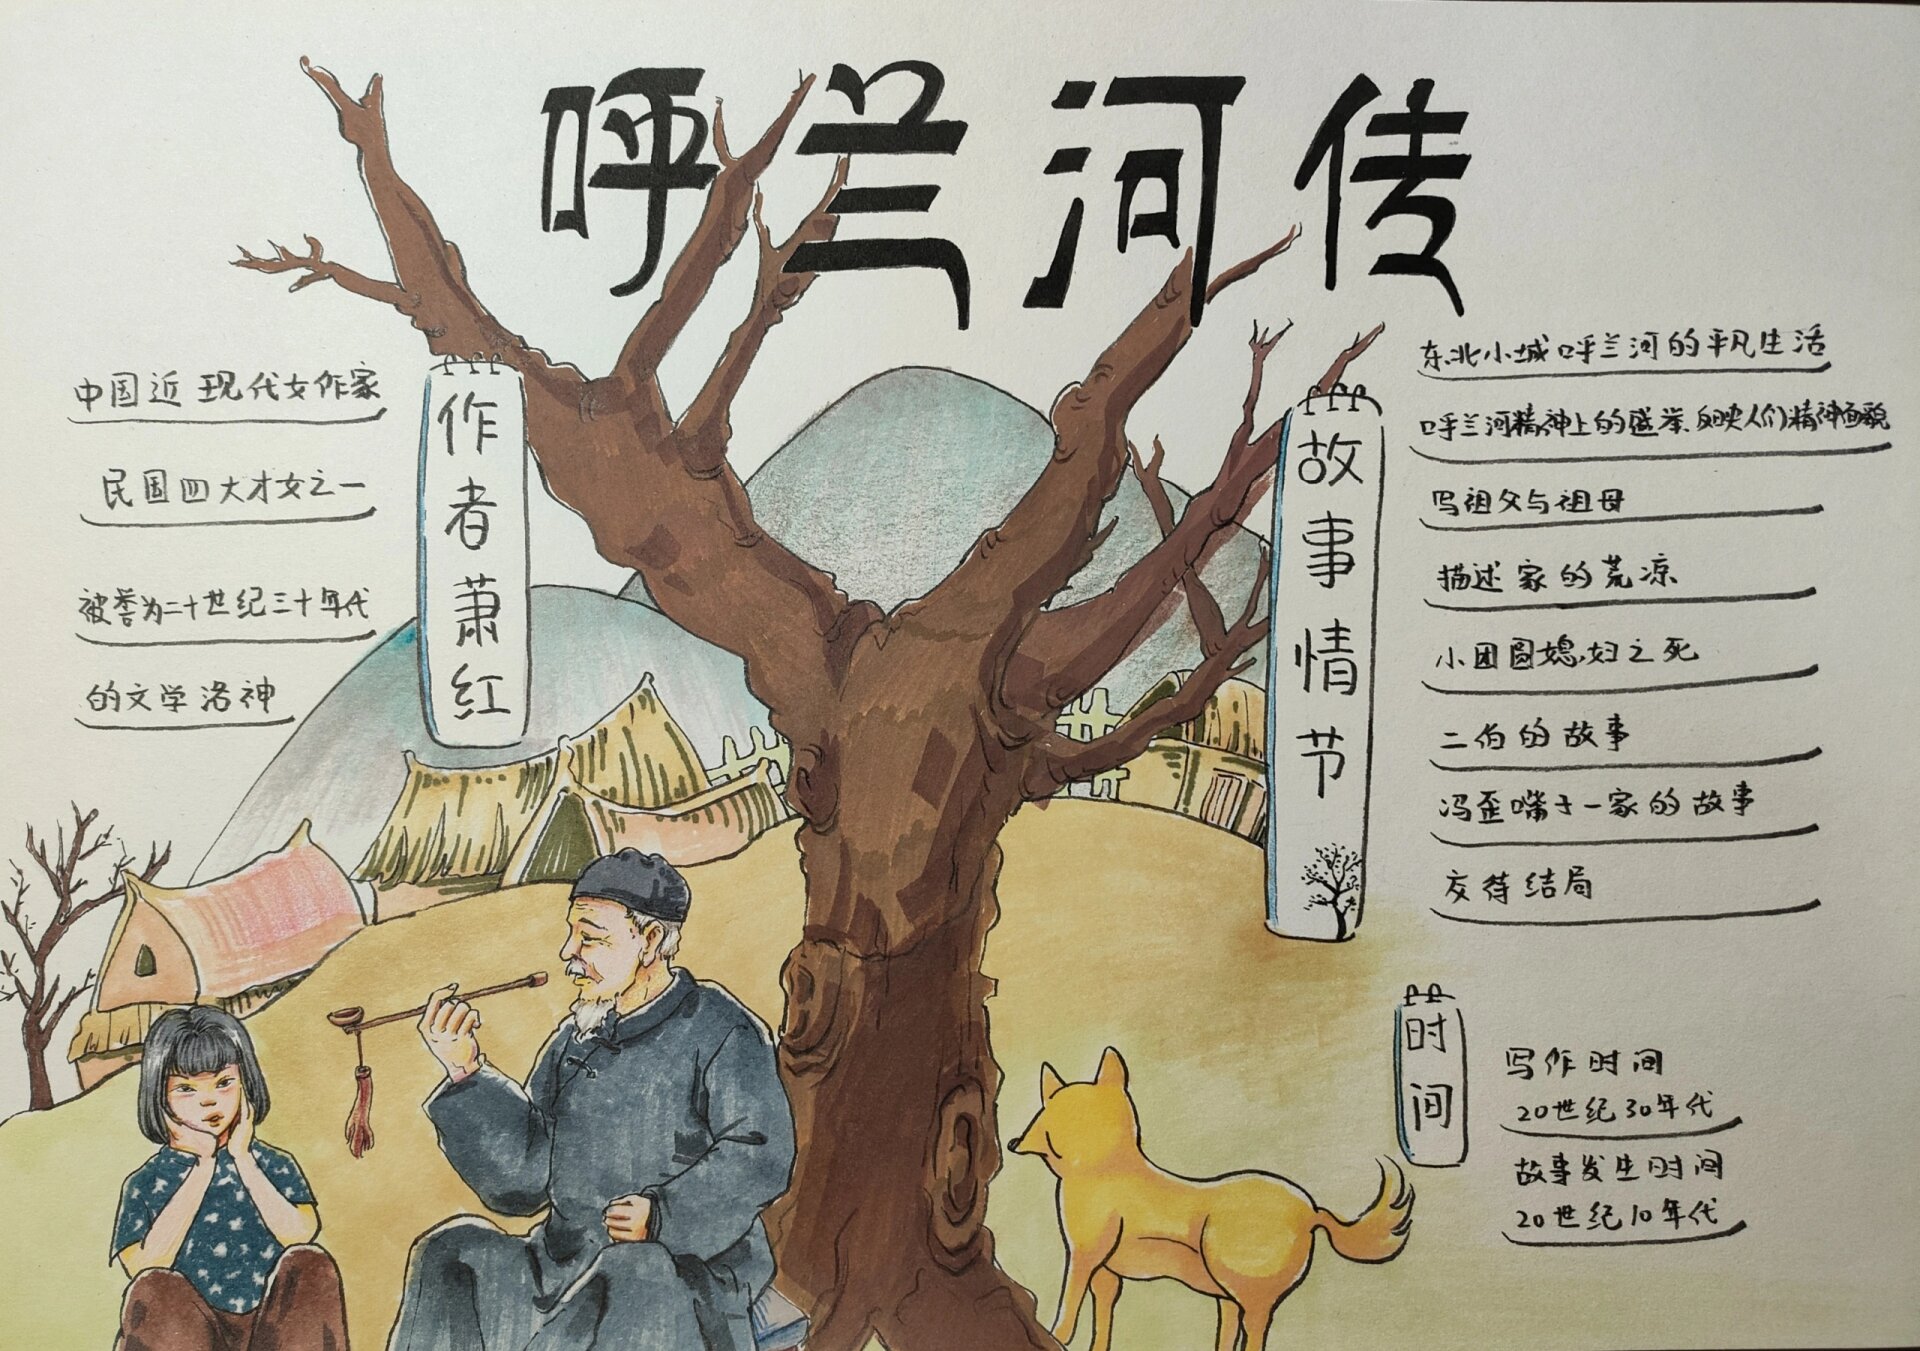 呼兰河传
作者萧红
中国近现代女作家
民国四大才女之一
被誉为二十世纪三十年代
的文学洛神
故事情节
东北小城呼兰河的平凡生活
呼兰河精神上的盛举、反映人们精神面貌
写祖父与祖母
描述家的荒凉
小团圆媳妇之死
二伯的故事
冯歪嘴子一家的故事
交待结局
时间
写作时间
20世纪30年代
故事发生时间
20世纪10年代